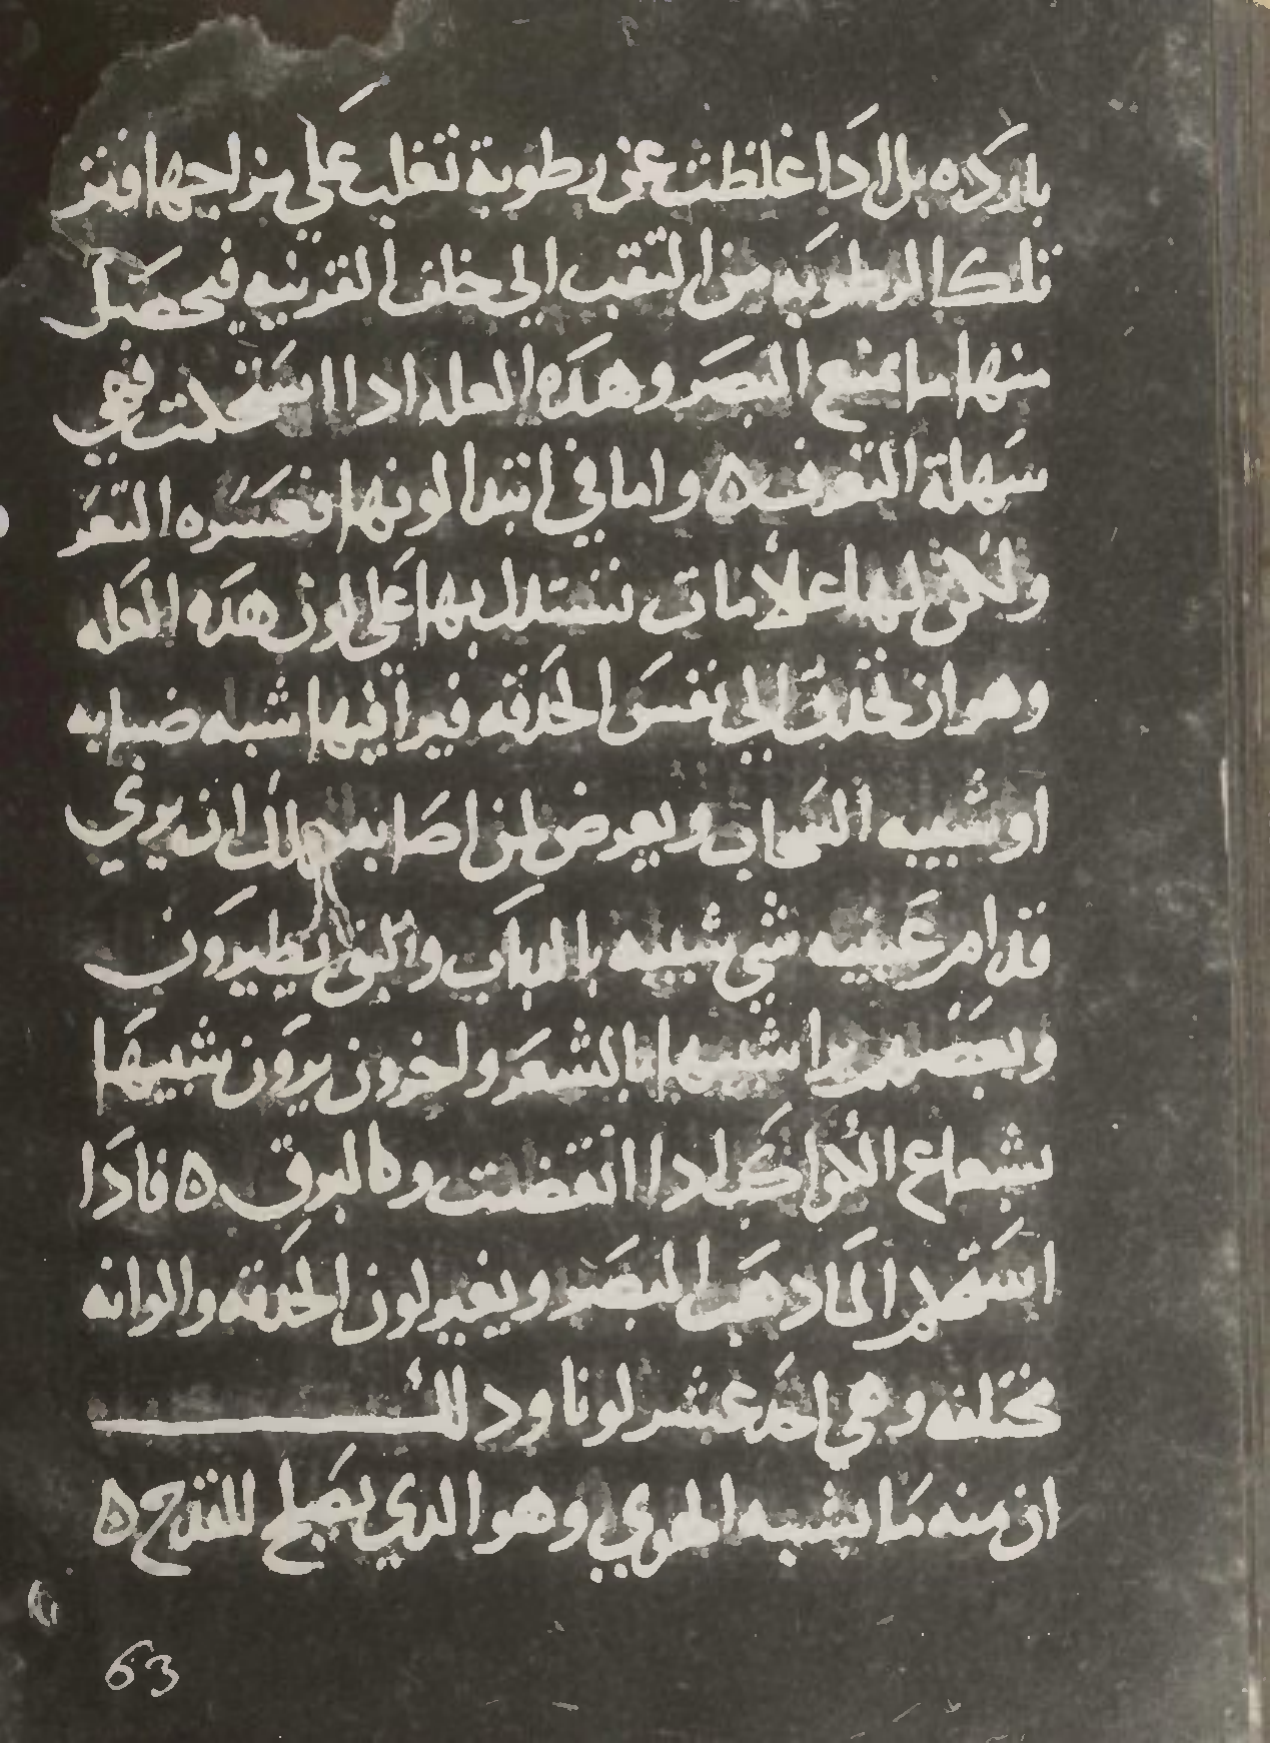 بارده بل اذا غلظت عن رطوبة تغلب على مزاجها فتنز
تلك الرطوبه من الثقب الى خلف القرنيه فيحصل
منها ما يمنع البصر وهذه العله اذا استحكمت فهي
سهلة التعرف ه واما في ابتدا لونها فعسره التعر
ولكن لها علامات نستدل بها على لون هذه العله
وهو ان تحدق الى نفس الحدقه فيرا فيها شبه ضبابه
او شبيه السحاب ويعرض لمن اصابه ذلك انه يرى
قدام عينيه شي شبيه بالدباب والبق يطيرون
وبعضهم يرا شبيها بالشعر واخرون يرون شبيها
بشعاع الكواكب ادا انقضت وكالبرق ه فادا
استتم الما دهب البصر ويغير لون الحدقه والوانه
مختلفه وهي احد عشر لونا ودلك
ان منه ما يشبه الهوي وهو الدي يصلح للقدح ه
63